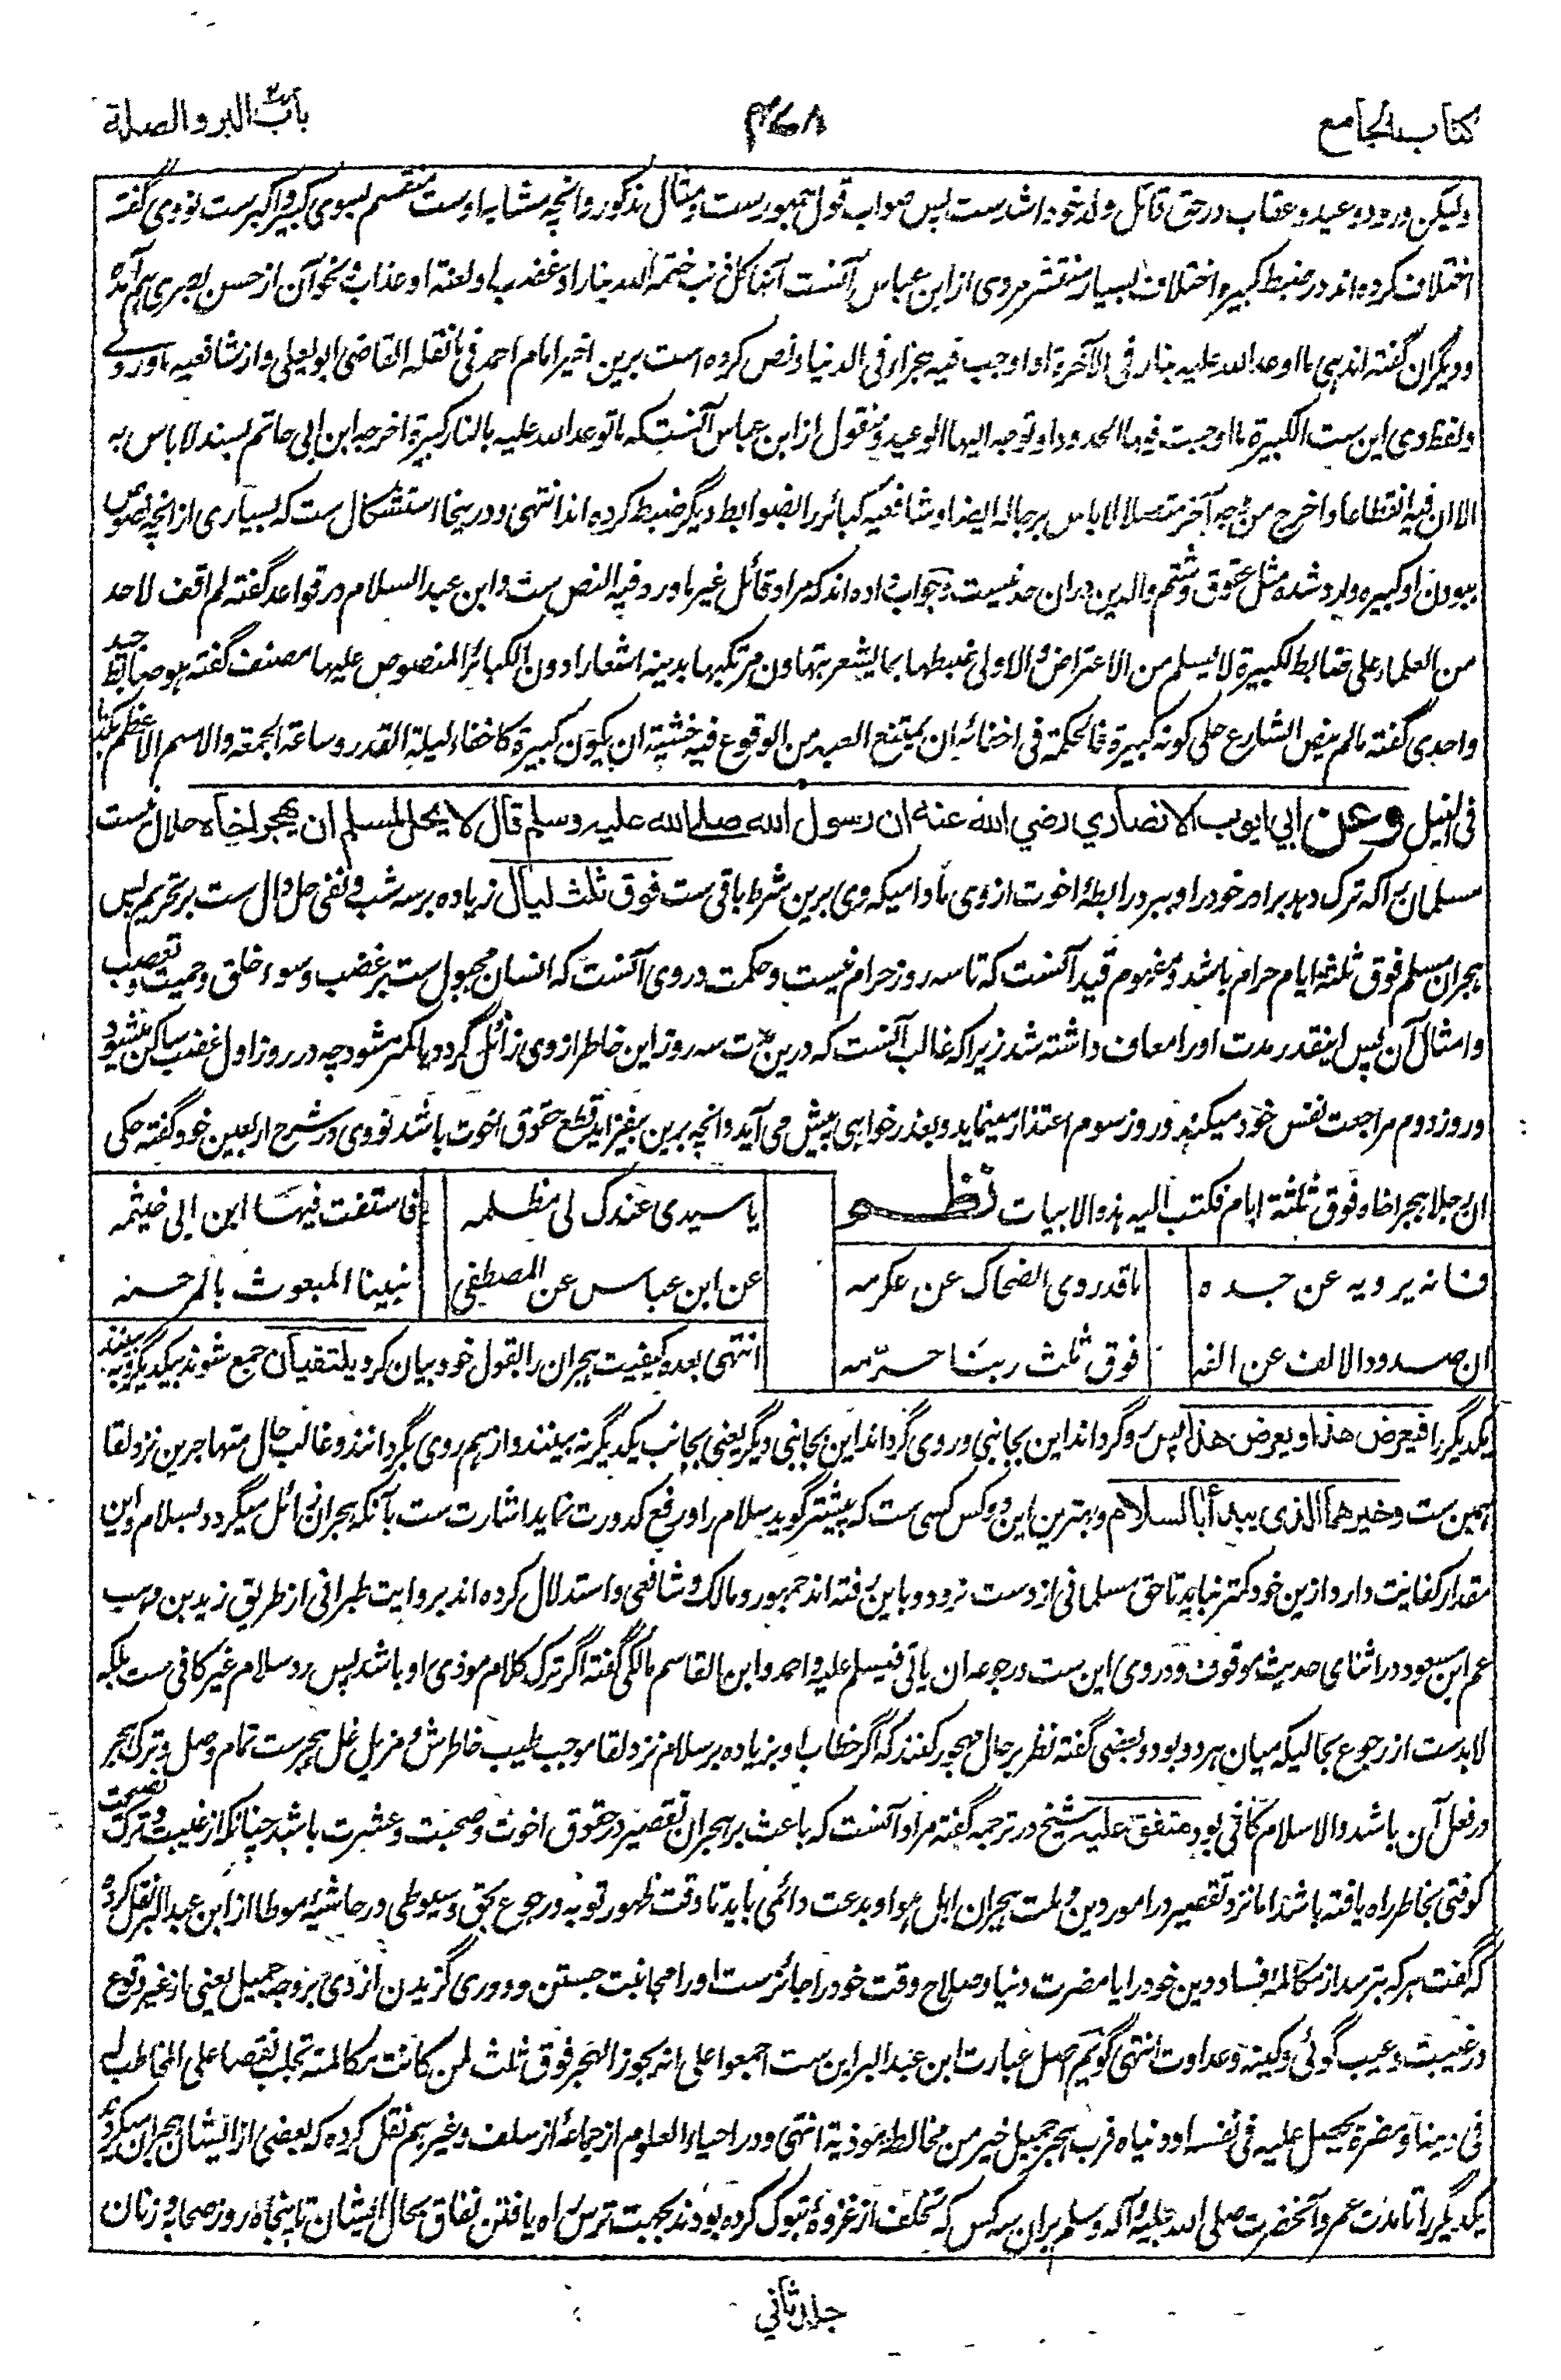 کتاب الجامع
۴۷۸
باب البر والصلة
ولیکن ورود وعید و عقاب در حق قاتل ولد خود اشد ست پس صواب قول جمهور ست و مثال مذکور و انچه مشابه اوست منقسم بسوی کبیر و اکبر ست نووی گفته
اختلاف کرده اند در ضبط کبیره اختلاف بسیار منتشر مروی از ابن عباس آنست آنها کل ذنب ختمه الله بنار او غضب او لعنة او عذاب و نحو آن از حسن بصری هم آمده
و دیگران گفته اند هی ما اوعد الله علیه بنار فی الآخرة او اوجب فیه جزاء فی الدنیا و نص کرده است برین اخیر امام احمد فی ما نقله القاضی ابو یعلی و از شافعیه ماوردی
و لفظ وی این ست الکبیرة ما اوجبت فیها الحدود او توجه الیها الوعید و منقول از ابن عباس آنست که ما توعد الله علیه بالنار کبیرة اخرجه ابن ابی حاتم بسند لا باس به
الا ان فیه انقطاعا و اخرج من وجه آخر متصلا لا باس برجاله ایضا و شافعیه کبائر را بضوابط دیگر ضبط کرده اند انتهی و درینجا استشکال ست که بسیاری از انچه نصوص
ببودن او کبیره وارد شده مثل عقوق و شتم والدین دران حد نیست و جواب داده اند که مراد قائل غیر ما ورد فیه النص ست و ابن عبد السلام در قواعد گفته لم اقف لاحد
من العلماء علی ضابط لکبیرة لا یسلم من الاعتراض و الاولی ضبطها بما یشعر بتهاون مرتکبها بدینه اشعارا دون الکبائر المنصوص علیها مصنف گفته هو ضابط جید
واحدی گفته ما لم ینص الشارع علی کونه کبیرة فالحکمة فی اخفائه ان یمتنع العبد من الوقوع فیه خشیة ان یکون کبیرة کاخفاء لیلة القدر و ساعة الجمعة و الاسم الاعظم کذا
فی النیل وعن ابي ايوب الانصاري رضي الله عنه ان رسول الله صلى الله عليه وسلم قال لا يحل لمسلم ان يهجر اخاه حلال نیست
مسلمان را که ترک دهد برادر خود را و ببرد رابطهٔ اخوت از وی مادامیکه وی برین شرط باقی ست فوق ثلث ليال زیاده بر سه شب و نفی حل دال ست بر تحریم پس
هجران مسلم فوق ثلثه ایام حرام باشد و مفهوم قید آنست که تا سه روز حرام نیست و حکمت در وی آنست که انسان مجبول ست بر غضب و سوء خلق و حمیت و تعصب
و امثال آن پس اینقدر مدت او را معاف داشته شد زیرا که غالب آنست که درین مدت سه روز این خاطر از وی زائل گردد یا کمتر شود چه در روز اول غضب ساکن میشود
و روز دوم مراجعت نفس خود میکند و روز سوم اعتذار مینماید و بعذر خواهی پیش می آید و انچه برین بیفزاید قطع حقوق اخوت باشد نووی در شرح اربعین خود گفته حکی
ان رجلا هجر اخاه فوق ثلثة ایام فکتب الیه هذه الابیات نظم
یا سیدی عندک لی مظلمه
فاستفت فیها ابن ابی خیثمه
فانه یرویه عن جده
ما قد روی الضحاک عن عکرمه
عن ابن عباس عن المصطفی
نبینا المبعوث بالمرحمه
ان صدود الالف عن الفه
فوق ثلث ربنا حرّمه
انتهی بعده کیفیت هجران را بقول خود بیان کرد يلتقيان جمع شوند بیکدیگر و به بینند
یکدیگر را فيعرض هذا ويعرض هذا پس رو گرداند این بجانبی و روی گرداند این بجانبی دیگر یعنی بجانب یکدیگر نه بینند و از هم روی بگردانند و غالب حال متهاجرین نزد لقا
همین ست وخيرهما الذي يبدأ بالسلام و بهترین این دو کس کسی ست که پیشتر گوید سلام را و رفع کدورت نماید اشارت ست بآنکه هجران زائل میگردد بسلام و این
مقدار کفایت دارد و ازین خود کمتر نباید تا حق مسلمانی از دست نرود و باین رفته اند جمهور و مالک و شافعی و استدلال کرده اند بروایت طبرانی از طریق زید بن وهب
عم ابن مسعود در اثنای حدیث موقوف و در وی این ست و رجوعه ان یاتی فیسلم علیه و احمد و ابن القاسم مالکی گفته اگر ترک کلام موذی او باشد پس رد سلام غیر کافی ست بلکه
لابدست از رجوع بحالیکه میان هر دو بود و بعضی گفته نظر بر حال مهجور کنند که اگر خطاب او بزیاده بر سلام نزد لقا موجب طیب خاطرش و مزیل غل هجر ست تمام وصل و ترک هجر
در فعل آن باشد و الا سلام کافی بود متفق عليه شیخ در ترجمه گفته مراد آنست که باعث بر هجران تقصیر در حقوق اخوت و صحبت و عشرت باشد چنانکه از غیبت و ترک نصیحت
کوفتی بخاطر راه یافته باشد اما نزد تقصیر در امور دین و ملت هجران اهل هوا و بدعت دائمی باید تا وقت ظهور توبه و رجوع بحق و سیوطی در حاشیهٔ موطا از ابن عبد البر نقل کرده
که گفت هر که بترسد از مکالمه افساد دین خود را یا مضرت دنیا و صلاح وقت خود را جائز ست او را مجانبت جستن و دوری گزیدن از وی بر وجه جمیل یعنی از غیر وقوع
در غیبت و عیب گوئی و کینه و عداوت انتهی گویم اصل عبارت ابن عبد البر این ست اجمعوا علی انه یجوز الهجر فوق ثلث لمن کانت مکالمته تجلب نقصا علی المخاطب له
فی دینه او مضرة یحصل علیه فی نفسه او دنیاه فرب هجر جمیل خیر من مخالطة موذیة انتهی و در احیاء العلوم از جماعهٔ از سلف و غیر هم نقل کرده که بعضی از ایشان هجران میکردند
یکدیگر را تا مدت عمر و آنحضرت صلی الله علیه و آله و سلم بران سه کس که تخلف از غزوهٔ تبوک کرده بودند بجهت ترس راه یافتن نفاق بحال ایشان تا پنجاه روز صحابه و زنان
جلد ثاني